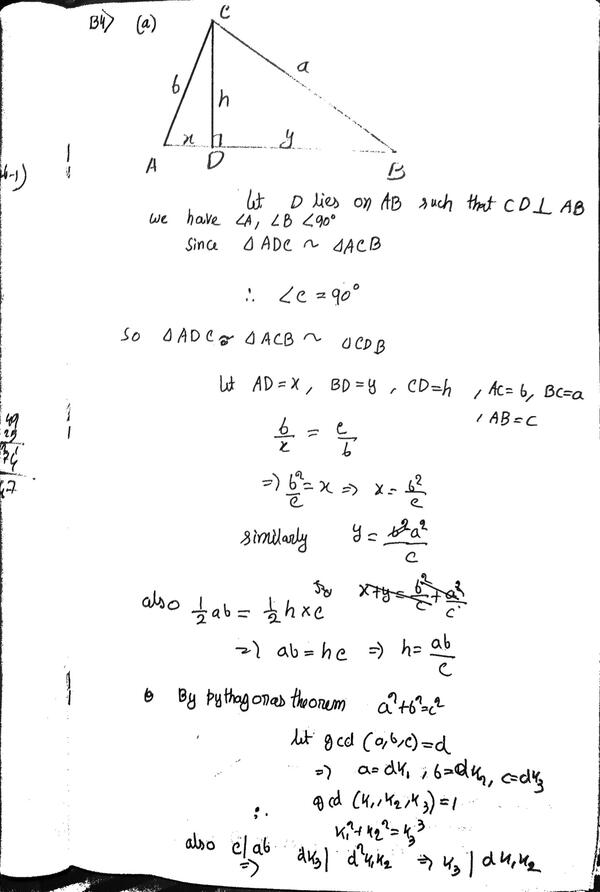 B4) (a)
C
b
a
h
x
y
A
D
B
4-1)
Let D lies on AB such that CD⊥ AB
we have ∠A, ∠B <90°
Since Δ ADC ~ ΔACB
∴ ∠C = 90°
So ΔADC ~ ΔACB ~ ΔCDB
Let AD=x, BD=y, CD=h, AC=b, BC=a
, AB=C
49
b/x = c/b
=> b²/c = x => x = b²/c
similarly y = b² a²/c
x+y = b²/c + a²/c
also 1/2 ab = 1/2 h×c
=> ab = hc => h = ab/c
By pythagoras theorem a²+b²=c²
Let gcd (a,b,c) = d
=> a=dk₁, b=dk₂, c=dk₃
gcd (k₁,k₂,k₃)=1
∴ k₁²+k₂²=k₃³
also c|ab
=> dk₃| d²k₁k₂ => k₃| dk₁k₂